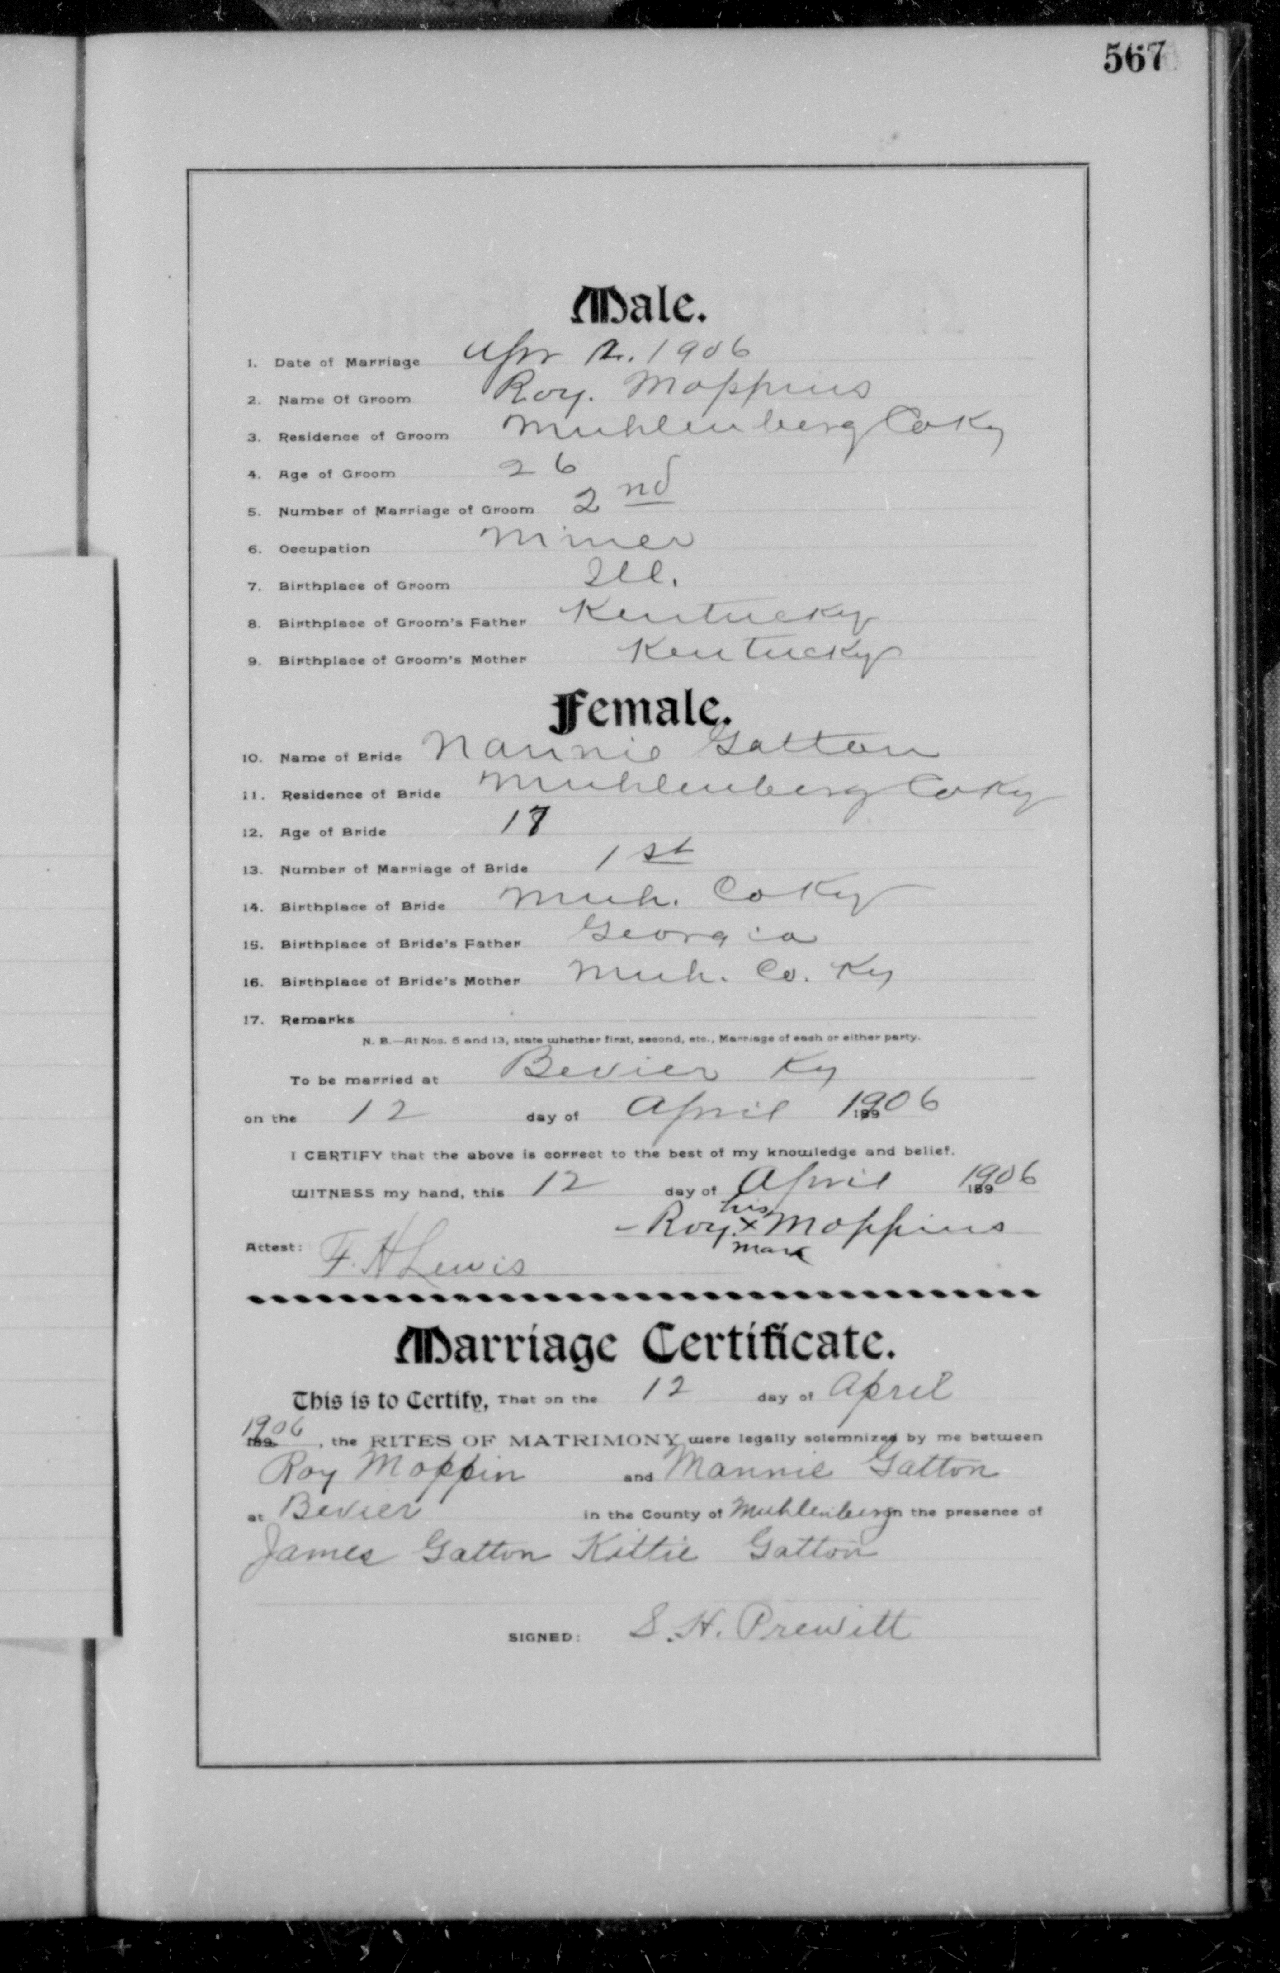 567
Male.
1. Date of Marriage Apr 12. 1906
2. Name Of Groom Roy. Moppins
3. Residence of Groom Muhlenberg Co Ky
4. Age of Groom 26
5. Number of Marriage of Groom 2nd
6. Occupation Miner
7. Birthplace of Groom Ill.
8. Birthplace of Groom's Father Kentucky
9. Birthplace of Groom's Mother Kentucky
Female.
10. Name of Bride Nannie Gatton
11. Residence of Bride Muhlenberg Co Ky
12. Age of Bride
13. Number of Marriage of Bride 1st
14. Birthplace of Bride Muh. Co Ky
15. Birthplace of Bride's Father Georgia
16. Birthplace of Bride's Mother Muh. Co. Ky
17. Remarks
N. B.—At Nos. 5 and 13, state whether first, second, etc., Marriage of each or either party.
To be married at Bevier Ky
on the 12 day of April 1906
I CERTIFY that the above is correct to the best of my knowledge and belief.
WITNESS my hand, this 12 day of April 1906
his
- Roy. x Moppins
mark
Attest: F. H Lewis
Marriage Certificate.
This is to Certify, That on the 12 day of April
1906, the RITES OF MATRIMONY were legally solemnized by me between
Roy Moppin and Mannie Gatton
at Bevier in the County of Muhlenberg in the presence of
James Gatton Kittie Gatton
SIGNED: S. H. Prewitt